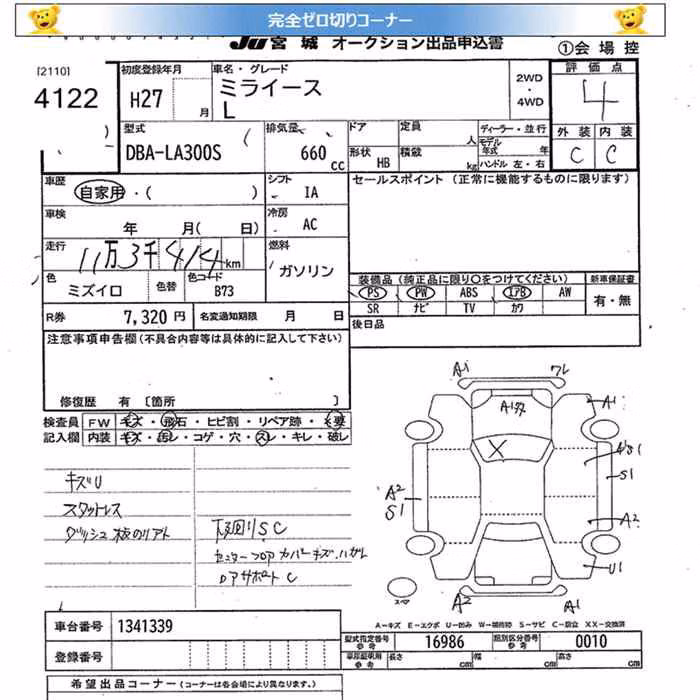 完全ゼロ切りコーナー
JU宮城 オークション出品申込書
①会場控
[2110]
4122
初度登録年月
H27 月
車名・グレード
ミライース
L
2WD
・
4WD
評価点
4
外装 内装
C C
型式
DBA-LA300S
排気量
660
CC
ドア
形状 HB
定員 人
積載 kg
ディーラー・並行
モデル年式 年
ハンドル 左・右
車歴
自家用・( )
シフト
IA
セールスポイント (正常に機能するものに限ります)
車検
年 月( 日)
冷房
AC
走行
11万3千414km
燃料
ガソリン
色
ミズイロ
色替
色コード
B73
装備品 (純正品に限り○をつけてください)
新車保証書
PS PW ABS エアB AW
有・無
SR ナビ TV カワ
R券 7,320円
名変通知期限 月 日
後日品
注意事項申告欄(不具合内容等は具体的に記入して下さい)
修復歴 有 [箇所 ]
検査員
記入欄
FW キズ・飛石・ヒビ割・リペア跡・×要
内装 キズ・汚レ・コゲ・穴・スレ・キレ・破レ
キズU
スタットレス
下廻りSC
センターフロアカバーキズ、ハガレ
A1 ワレ
A1
X
S1
A2
S1
A2
U1
スペア
A2 A1
A-キズ E-エクボ U-凹み W-補修跡 S-サビ C-腐食 XX-交換済
車台番号 1341339
登録番号
型式指定番号
参考
16986
類別区分番号
参考
0010
長さ cm 幅 cm 高さ cm
希望出品コーナー (コーナーは各会場により異なります。)